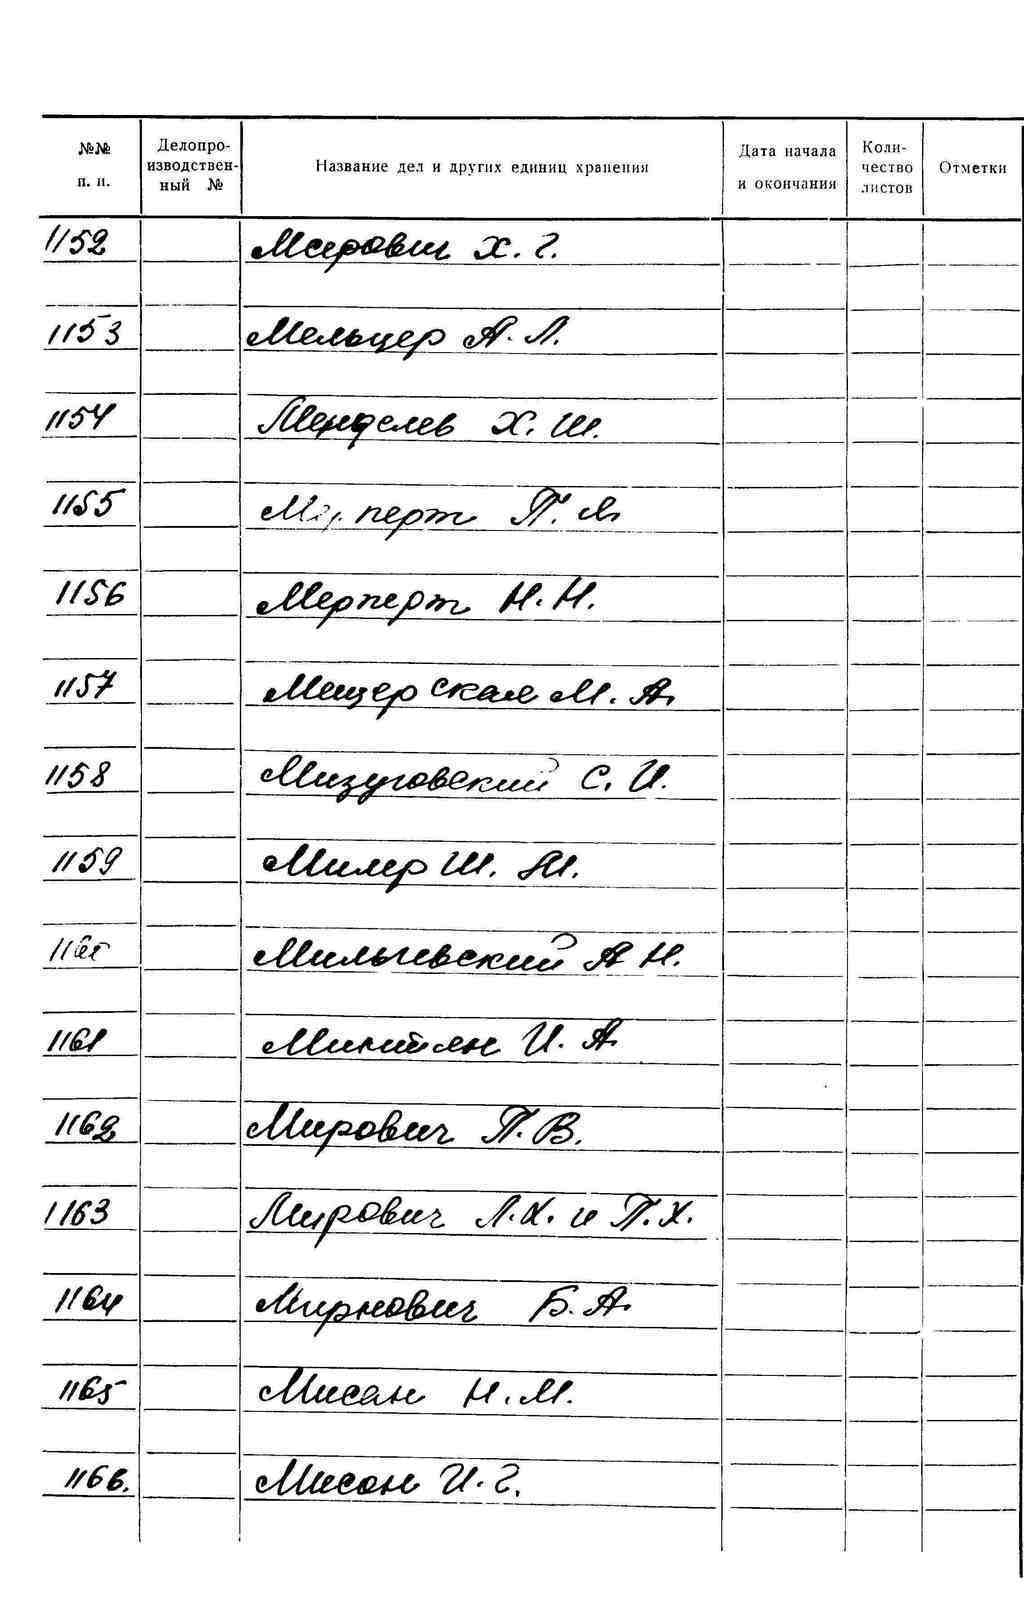 №№ п. п. Делопро-изводствен-ный № Название дел и других единиц хранения Дата начала и окончания Коли-чество листов Отметки
1152 Меерович Х. Г.
1153 Мельцер А. Л.
1154 Менделев Х. Ш.
1155 Мерперт П. Я.
1156 Мерперт Н. Н.
1157 Мещерская М. А.
1158 Мизуговский С. И.
1159 Милер Ш. М.
1160 Мильчевский А Н.
1161 И. А.
1162 Мирович П. В.
1163 Мирович Л. Х. и П. Х.
1164 Мирнович Б. А.
1165 Мисан Н. М.
1166. Мисон И. Г.